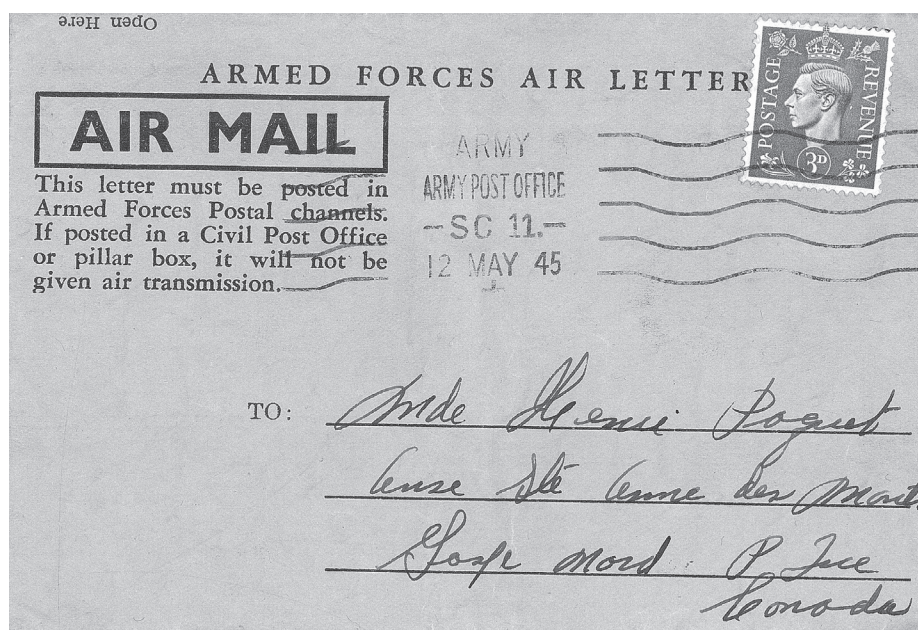 Open Here
ARMED FORCES AIR LETTER
POSTAGE REVENUE
3D
AIR MAIL
This letter must be posted in
Armed Forces Postal channels.
If posted in a Civil Post Office
or pillar box, it will not be
given air transmission.
ARMY
ARMY POST OFFICE
-SC 11.-
12 MAY 45
TO: Mde Henri Paquet
Anse Ste Anne des Monts
Gaspe Nord P Que
Canada